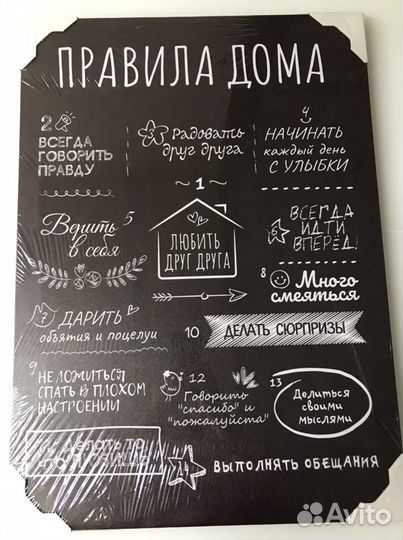 ПРАВИЛА ДОМА
2
ВСЕГДА
ГОВОРИТЬ
ПРАВДУ
3 Радовать
друг друга
4
НАЧИНАТЬ
каждый день
С УЛЫБКИ
1
ЛЮБИТЬ
ДРУГ ДРУГА
5
Верить
в себя
6
ВСЕГДА
ИДТИ
ВПЕРЁД!
8
Много
смеяться
7 ДАРИТЬ
объятия и поцелуи
10 ДЕЛАТЬ СЮРПРИЗЫ
9
НЕ ЛОЖИТЬСЯ
СПАТЬ В ПЛОХОМ
НАСТРОЕНИИ
12
Говорить
"спасибо" и
"пожалуйста"
13
Делиться
своими
мыслями
ДЕЛАТЬ ТО
14 ВЫПОЛНЯТЬ ОБЕЩАНИЯ
Avito